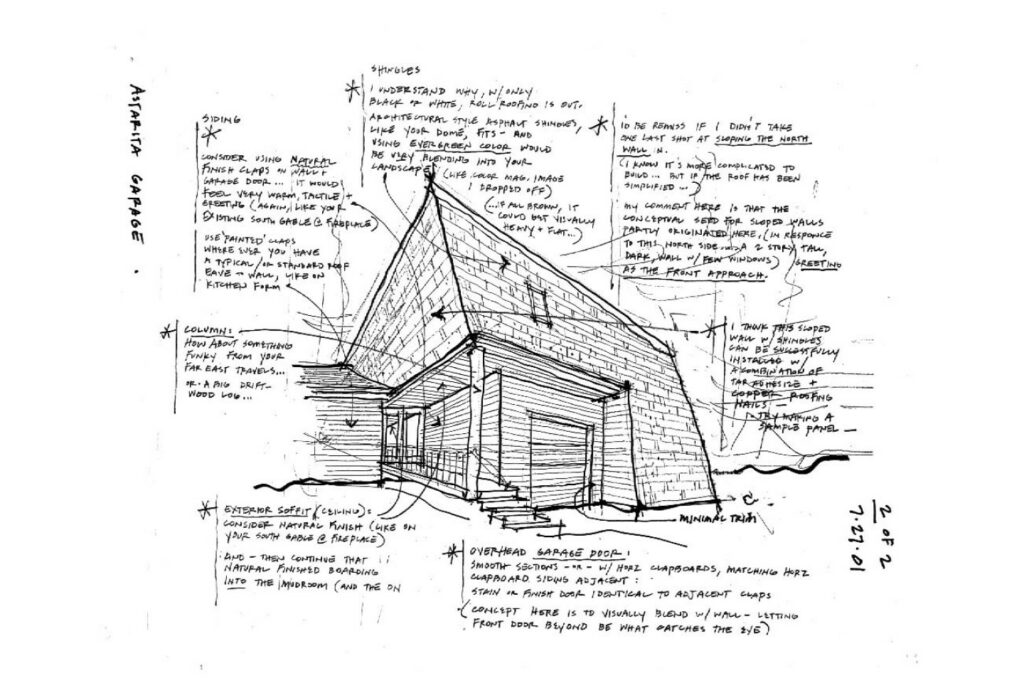 ASTARITA GARAGE.
SHINGLES
I UNDERSTAND WHY, W/ ONLY
BLACK OR WHITE, ROLL ROOFING IS OUT.
ARCHITECTURAL STYLE ASPHALT SHINGLES,
LIKE YOUR DOME, FITS - AND
USING EVERGREEN COLOR WOULD
BE VERY BLENDING INTO YOUR
LANDSCAPE
(LIKE COLOR MAG. IMAGE
I DROPPED OFF)
(...IF ALL BROWN, IT
COULD GET VISUALLY
HEAVY + FLAT...)
SIDING
CONSIDER USING NATURAL
FINISH CLAPS ON WALL +
GARAGE DOOR... IT WOULD
FEEL VERY WARM, TACTILE +
GREETING (AGAIN, LIKE YOUR
EXISTING SOUTH GABLE @ FIREPLACE)
USE 'PAINTED' CLAPS
WHERE EVER YOU HAVE
A TYPICAL/OR STANDARD ROOF
EAVE TO WALL, LIKE ON
KITCHEN FORM
I'D BE REMISS IF I DIDN'T TAKE
ONE LAST SHOT AT SLOPING THE NORTH
WALL IN.
(I KNOW IT'S MORE COMPLICATED TO
BUILD... BUT IF THE ROOF HAS BEEN
SIMPLIFIED...)
MY COMMENT HERE IS THAT THE
CONCEPTUAL SEED FOR SLOPED WALLS
PARTLY ORIGINATED HERE, (IN RESPONCE
TO THIS NORTH SIDE... A 2 STORY TALL,
DARK, WALL W/ FEW WINDOWS) GREETING
AS THE FRONT APPROACH.
COLUMN:
HOW ABOUT SOMETHING
FUNKY FROM YOUR
FAR EAST TRAVELS...
OR A BIG DRIFT-
WOOD LOG...
I THINK THIS SLOPED
WALL W/ SHINGLES
CAN BE SUCESSFULLY
INSTALLED W/
A COMBINATION OF
TAR ADHESIZE +
COPPER ROOFING
NAILS —
TRY MAKING A
SAMPLE PANEL —
EXTERIOR SOFFIT (CEILING):
CONSIDER NATURAL FINISH (LIKE ON
YOUR SOUTH GABLE @ FIREPLACE)
AND - THEN CONTINUE THAT
NATURAL FINISHED BOARDING
INTO THE MUDROOM (AND THE ON
MINIMAL TRIM
OVERHEAD GARAGE DOOR:
SMOOTH SECTIONS -OR- W/ HORZ CLAPBOARDS, MATCHING HORZ
CLAPBOARD SIDING ADJACENT:
STAIN OR FINISH DOOR IDENTICAL TO ADJACENT CLAPS
(CONCEPT HERE IS TO VISUALLY BLEND W/ WALL - LETTING
FRONT DOOR BEYOND BE WHAT CATCHES THE EYE)
2 OF 2
7.27.01